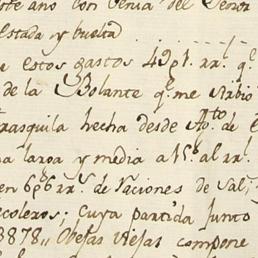 este año con venia del Señor
Estada y buelta
estos gastos 4391. rr.^s q.^e
de la Bolante q.^e me sirbio
trasquila hecha desde Ag.^to de
larga y media a N.^s al rr.^l
en 696 rr.^s de raciones de Sal,
ecoleros; cuya partida junto
3878,, Obejas Viejas compone